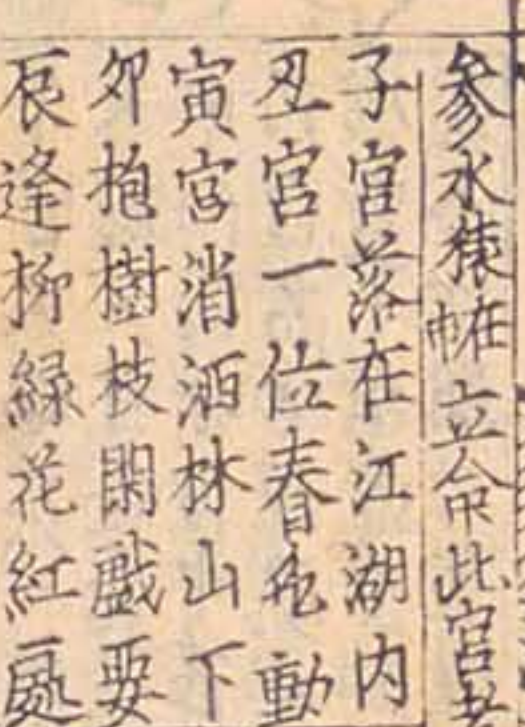 参水猿立命此宮
子宮落在江湖内
丑宮一位春動
寅宮消洒林山下
卯抱樹枝閑戯耍
辰逢柳緑花紅處